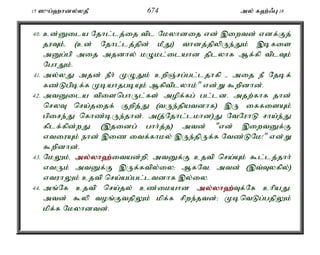 15 ஸுப்ஹானல்லதீ 674 அல் கஹ்ஃபு 18
40. உன்னுடைய தோட்டத்தை விட மேலானதை என் இறைவன் எனக்குத்
தரவும், (உன் தோட்டத்தின் மீது) வானத்திலிருந்தும் இடிகளை
அனுப்பி அதை அதனால் மழுமட்டையான திடலாக ஆக்கி விடவும்
போதும்.
41. அல்லது அதன் நீர் முழுதும் உறிஞ்சப்பட்டதாகி - அதை நீ தேடிக்
கண்டுபிடிக்க முடியாதபடியும் ஆகிவிடலாம்" என்று கூறினான்.
42. அவனுடைய விளைபொருட்கள் அழிக்கப் பட்டன. அதற்காக தான்
செலவு செய்ததைக் குறித்து (வருந்தியவனாக) இரு கைகளையும்
பிசைந்து கொண்டிருந்தான். அ(த்தோட்டமான)து வேரோடு சாய்ந்து
கிடக்கின்றது. (இதனைப் பார்த்த) அவன் "என் இறைவனுக்கு
எவரையும் நான் இணை வைக்காமல் இருந்திருக்க வேண்டுமே!" என்று
கூறினான்.
43. மேலும், அல்லாஹ்வையன்றி, அவனுக்கு உதவி செய்யும் கூட்டத்தார்
எவரும் அவனுக்கு இருக்கவில்லை; ஆகவே, அவன் (இவ்வுலகில்)
எவராலும் உதவி செய்யப்பட்டவனாக இல்லை.
44. அங்கே உதவி செய்தல் உண்மையான அல்லாஹ்வுக்கே உரியது.
அவன் கூலி வழங்குவதிலும் மிக்க சிறந்தவன்; முடிவெடுப்பதிலும்
மிக்க மேலானவன்.